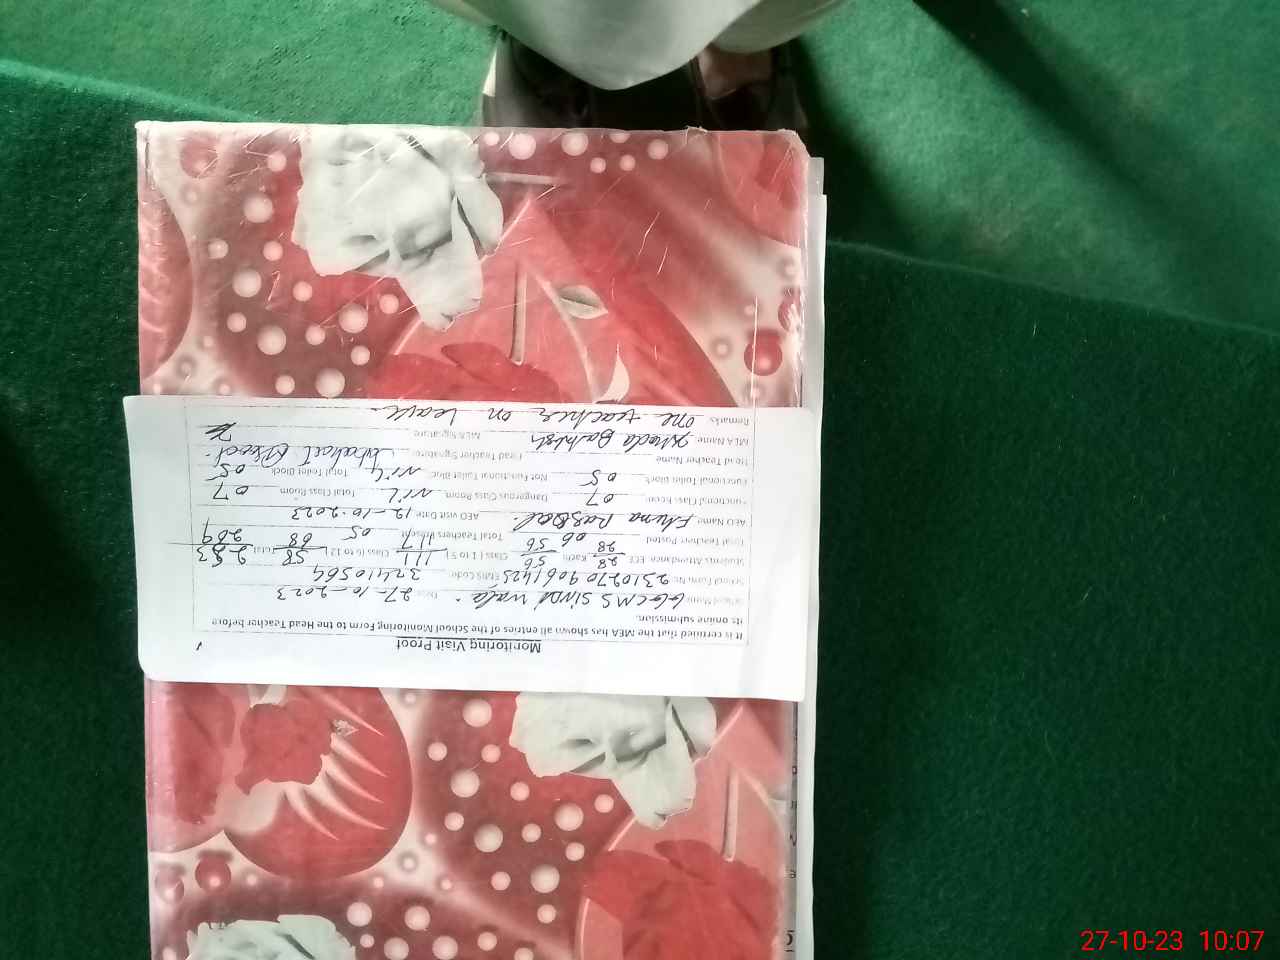 Monitoring Visit Proof
It is certified that the MEA has shown all entries of the School Monitoring Form to the Head Teacher before
its online submission.
School Name GGCMS Sindh wala Date 27-10-2023
School Form No 23102709061425 EMIS Code 32410564
Students Attendance ECE 28/28 Kachi 56/56 Class (1 to 5) 111/117 Class (6 to 12) 58/68 Total 253/269
Total Teacher Posted 06 Total Teachers Present 05
AEO Name Rasool AEO visit Date 12-10-2023
Functional Class Room 07 Dangerous Class Room Nil Total Class Room 07
Functional Toilet Block 05 Not Functional Toilet Block Nil Total Toilet Block 05
Head Teacher Name Head Teacher Signature
MEA Name MEA Signature
Remarks One teacher on leave
27-10-23 10:07